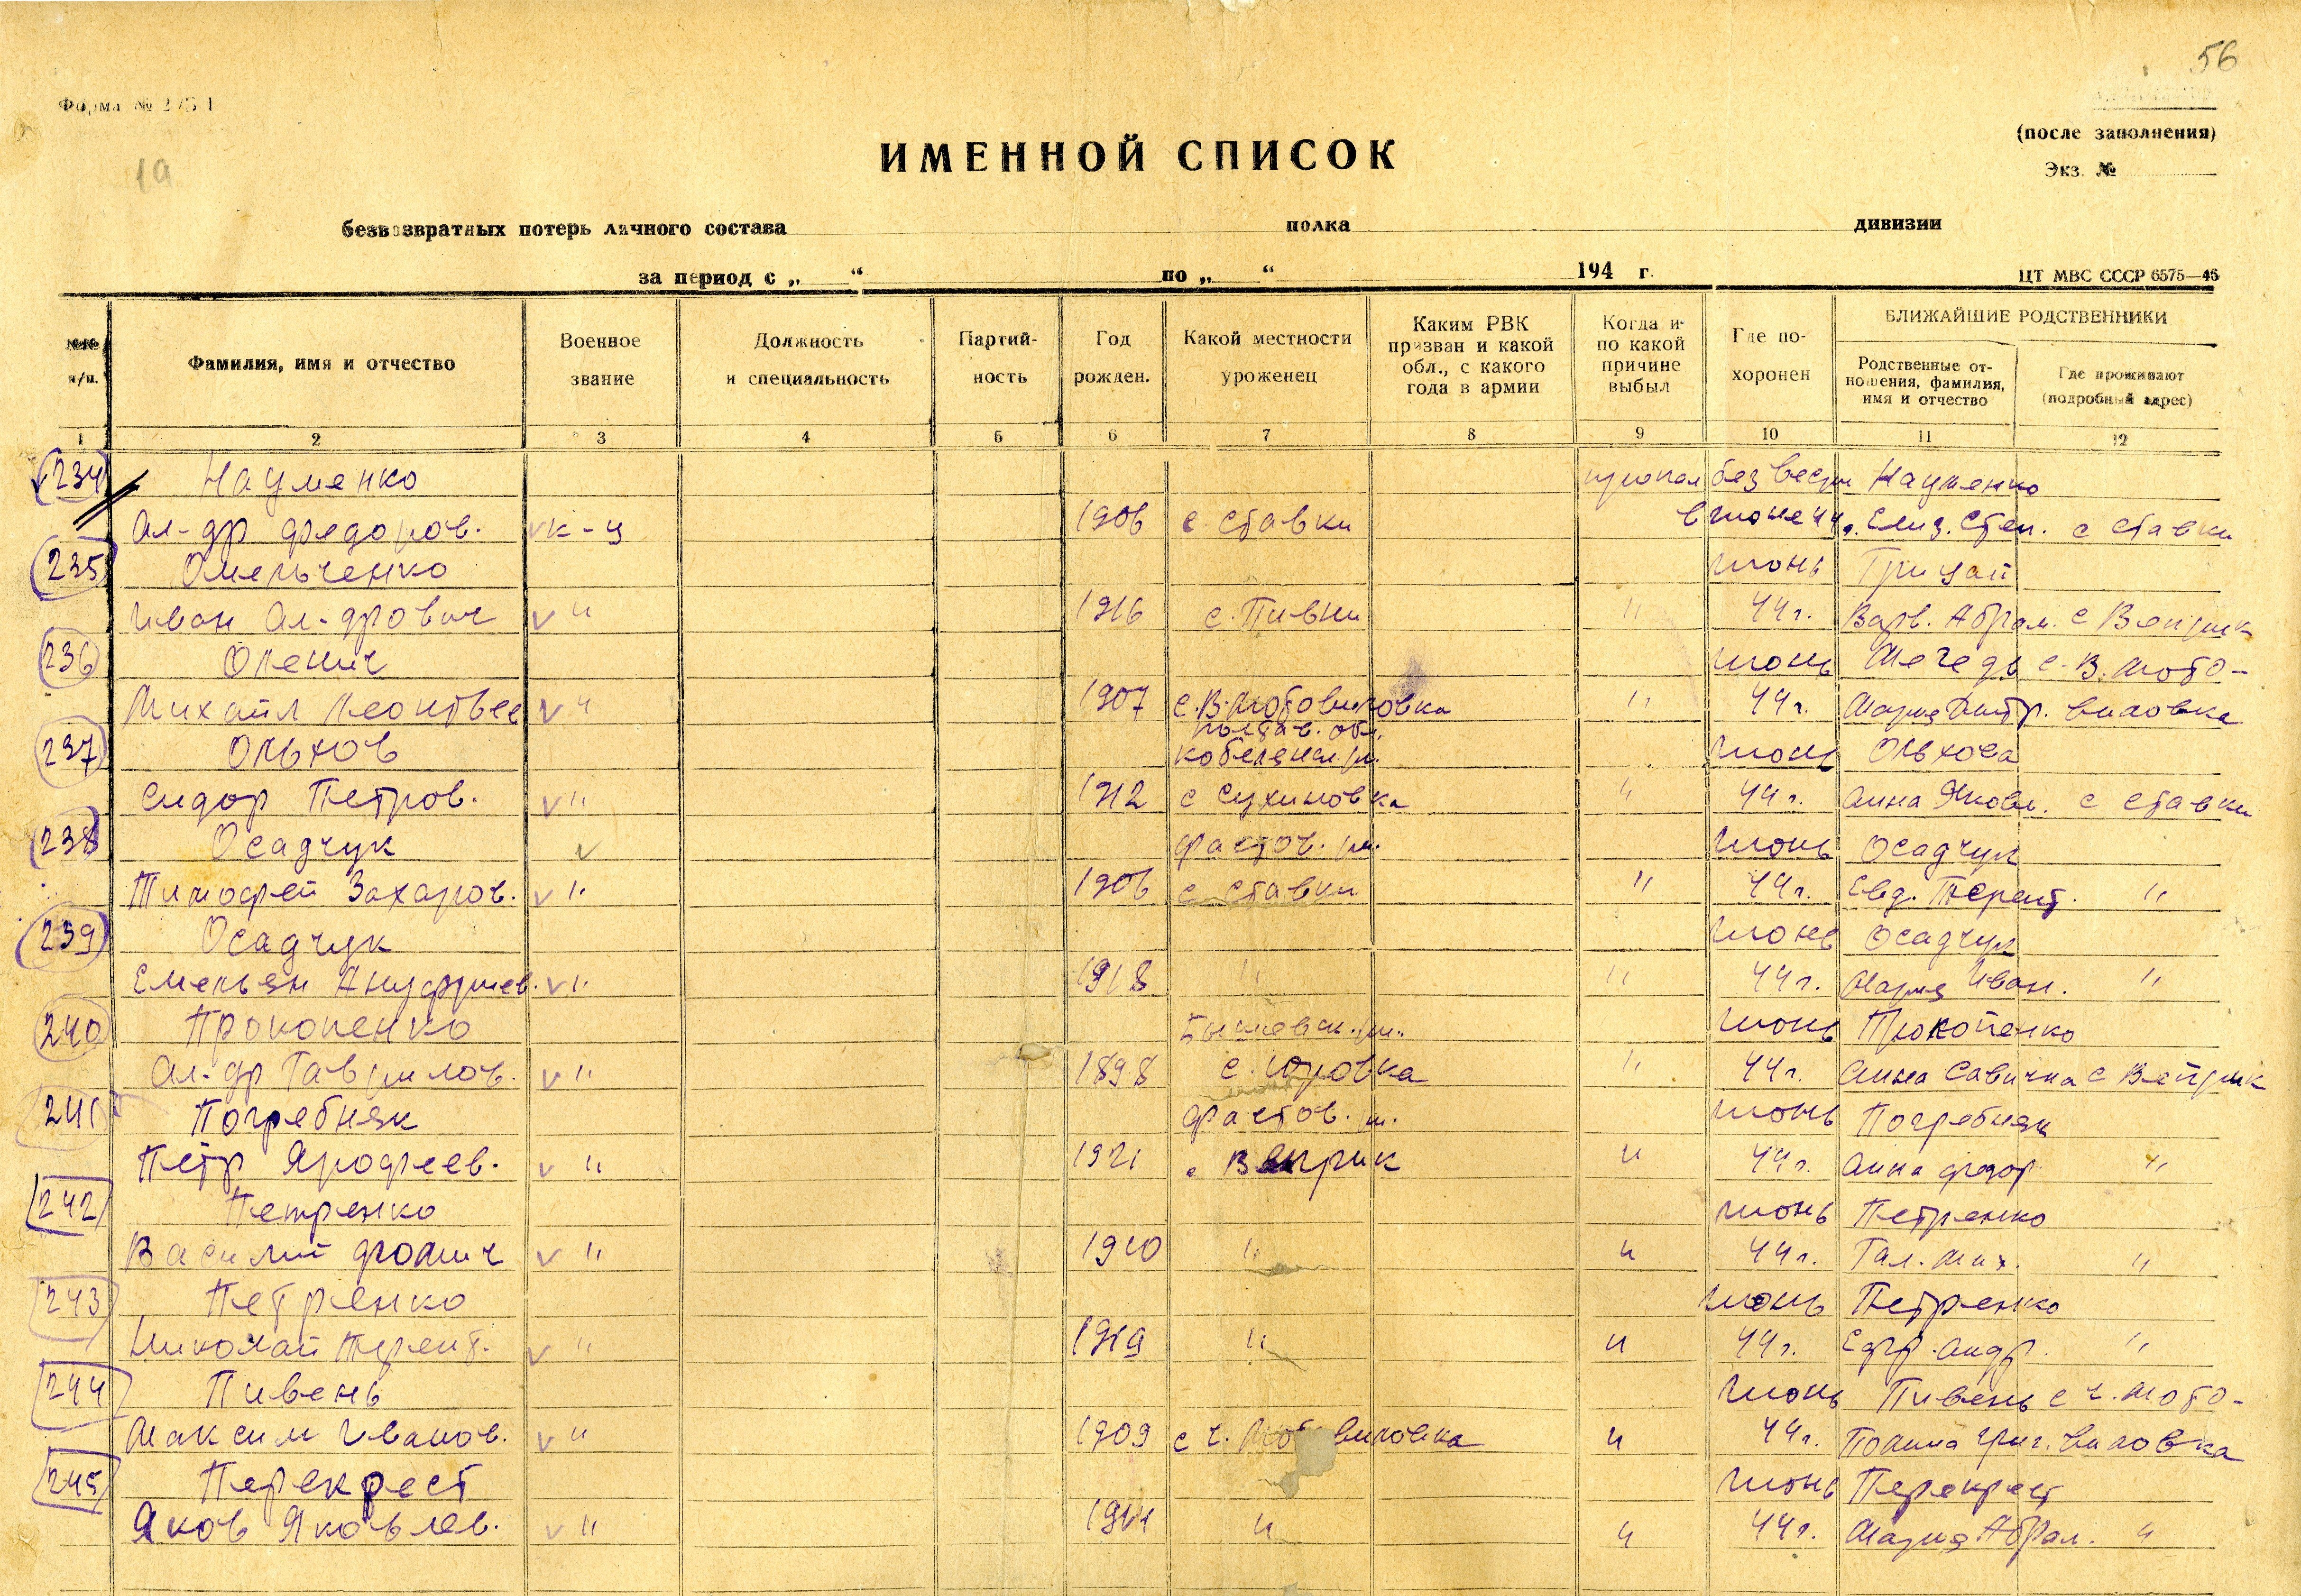 56
Форма № 2/5 1
(после заполнения)
Экз. №
19
ИМЕННОЙ СПИСОК
безвозвратных потерь личного состава полка дивизии
за период с „ “ по „ “ 194 г.
ЦТ МВС СССР 6575—46
№№ п/п.
Фамилия, имя и отчество
Военное звание
Должность и специальность
Партий- ность
Год рожден.
Какой местности уроженец
Каким РВК призван и какой обл., с какого года в армии
Когда и по какой причине выбыл
Где по- хоронен
БЛИЖАЙШИЕ РОДСТВЕННИКИ
Родственные от- ношения, фамилия, имя и отчество
Где проживают (подробный адрес)
1 2 3 4 5 6 7 8 9 10 11 12
234 Науменко пропал без вести Науменко
Ал-др Федоров. к-ц 1906 с. Ставки в июне 44 г. Елиз. Степ. с Ставки
235 Омельченко июнь Грицай
Иван Ал-дрович " 1916 с. Пивни " 44 г. Варв. Абрам. с Веприк
236 Оленич июнь Мегедь с. В. Мото-
Михаил Леонтьев " 1907 с. В. Мотовиловка " 44 г. Мария Дмтр. виловка
237 Ольхов Полтав. обл. Кобеляцк. р. июнь Ольхова
Сидор Петров. " 1912 с Сухиновка " 44 г. Анна Яковл. с Ставки
238 Осадчук Фастов. р. июнь Осадчук
Тимофей Захаров. " 1906 с Ставки " 44 г. Евд. Терент. "
239 Осадчук июнь Осадчук
Емельян Ануфриев. " 1918 " " 44 г. Мария Иван. "
240 Прокопенко Бышевск. р. июнь Прокопенко
Ал-др Гаврилов. " 1898 с. Юровка " 44 г. Анна Савична с Веприк
241 Погребняк Фастов. р. июнь Погребняк
Петр Ярофеев. " 1921 " Веприк " 44 г. Анна Федор "
242 Петренко июнь Петренко
Василий Фомич " 1910 " " 44 г. Гал. Мих. "
243 Петренко июнь Петренко
Николай Терент. " 1919 " " 44 г. Ефр. Андр. "
244 Пивень июнь Пивень с ч. Мото-
Максим Иванов. " 1909 с ч. Мотовиловка " 44 г. Полина Григ. виловка
245 Перекрест июнь Перекрест
Яков Яковлев. " " " 44 г. Мария Абрам. "